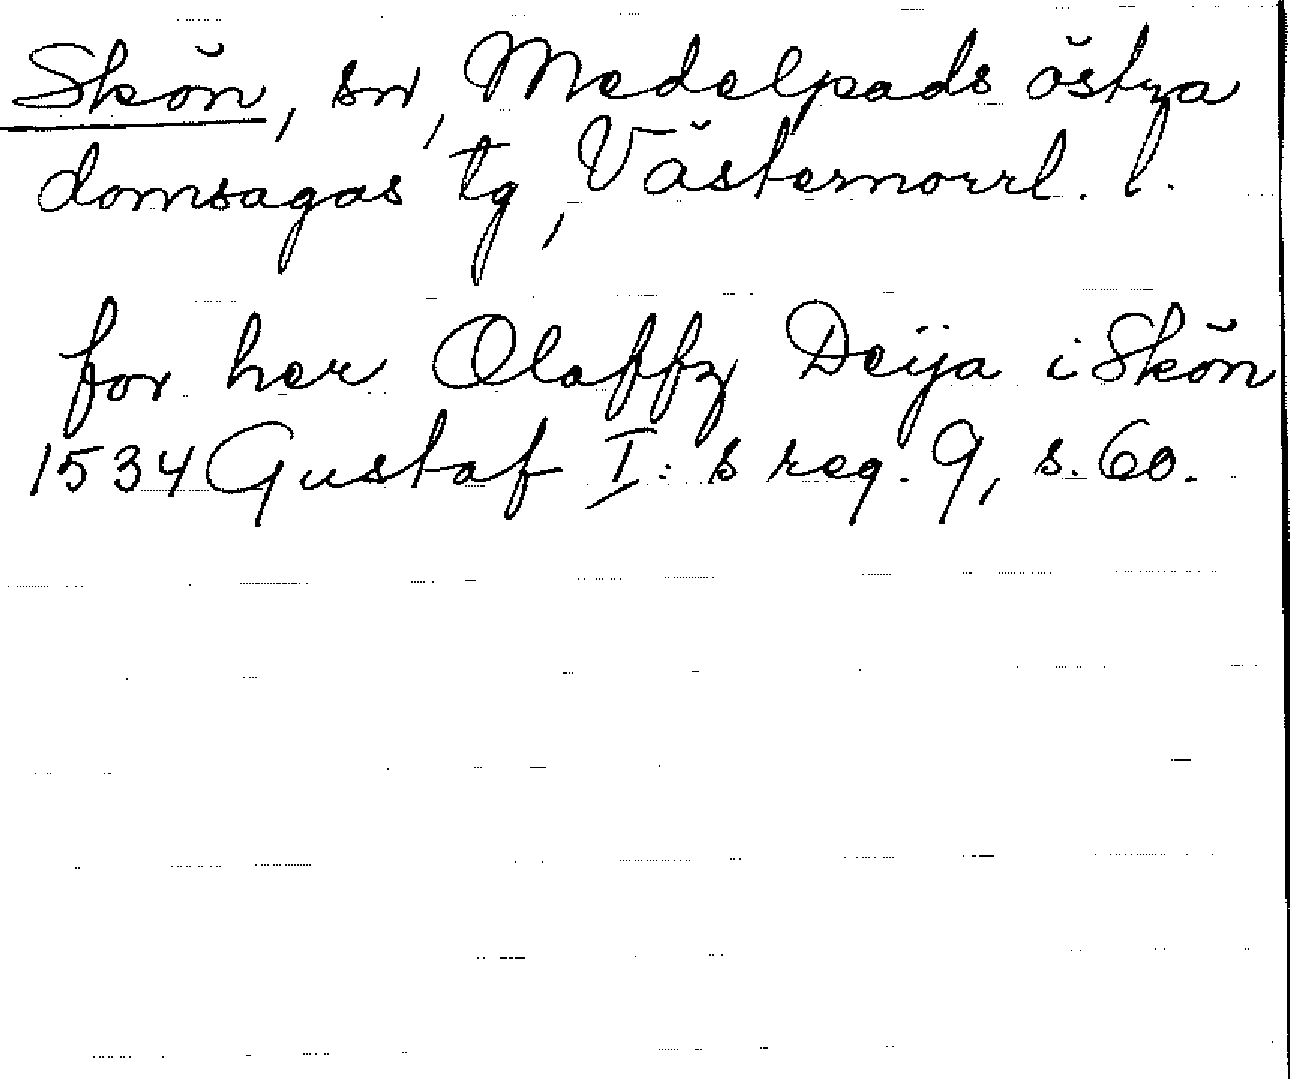 Skön, sn, Medelpads östra
domsagas tg, Västernorrl. l.
for her Olaffz Deija i Skön
1534 Gustaf I:s reg. 9, s. 60.